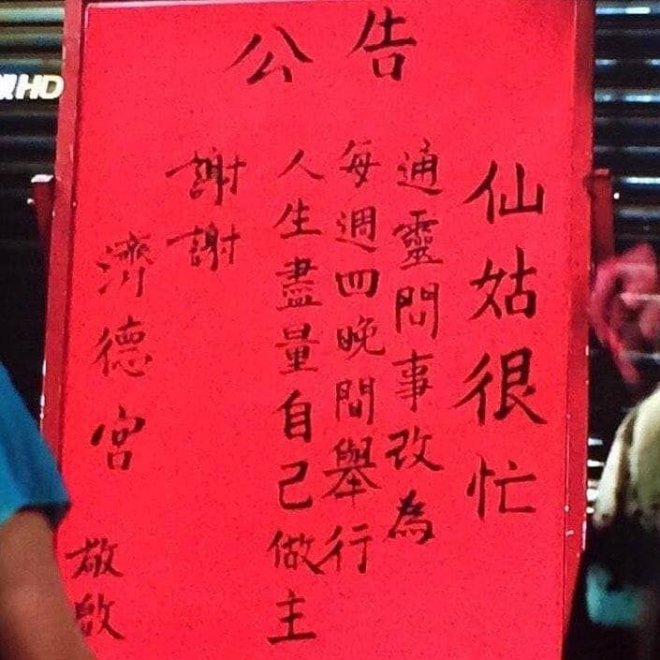 公告
仙姑很忙
通靈問事改為
每週四晚間舉行
人生盡量自己做主
謝謝
濟德宮 敬啟
HD